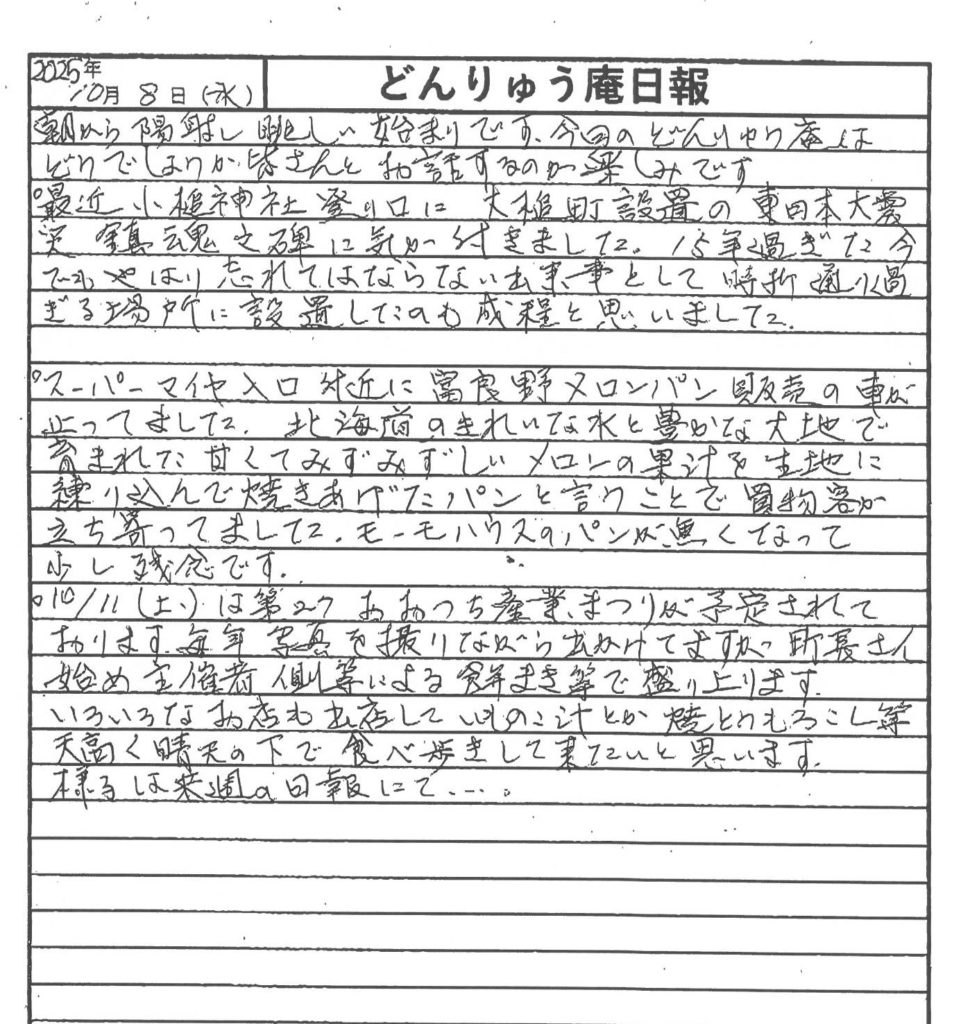 2025年
10月 8日(水)
どんりゅう庵日報
朝から陽射し眩しい始まりです。今回のどんりゅう庵は
どうでしょうか皆さんとお話するのが楽しみです
○最近小槌神社登り口に大槌町設置の東日本大震
災鎮魂之碑に気が付きました。15年過ぎた今
でもやはり忘れてはならない出来事として時折通り過
ぎる場所に設置したのも成程と思いました。
○スーパーマイヤ入口付近に富良野メロンパン販売の車が
止ってました。北海道のきれいな水と豊かな大地で
育まれた甘くてみずみずしいメロンの果汁を生地に
練り込んで焼きあげたパンと言うことで買物客が
立ち寄ってました。モーモーハウスのパンが無くなって
少し残念です。
○10/11(土)は第27おおつち産業まつりが予定されて
おります。毎年写真を撮りながら出かけてますが町長さん
始め主催者側等による餅まき等で盛り上ります。
いろいろなお店も出店していものこ汁とか焼とうもろこし等
天高く晴天の下で食べ歩きして来たいと思います。
様子は来週の日報にて…。